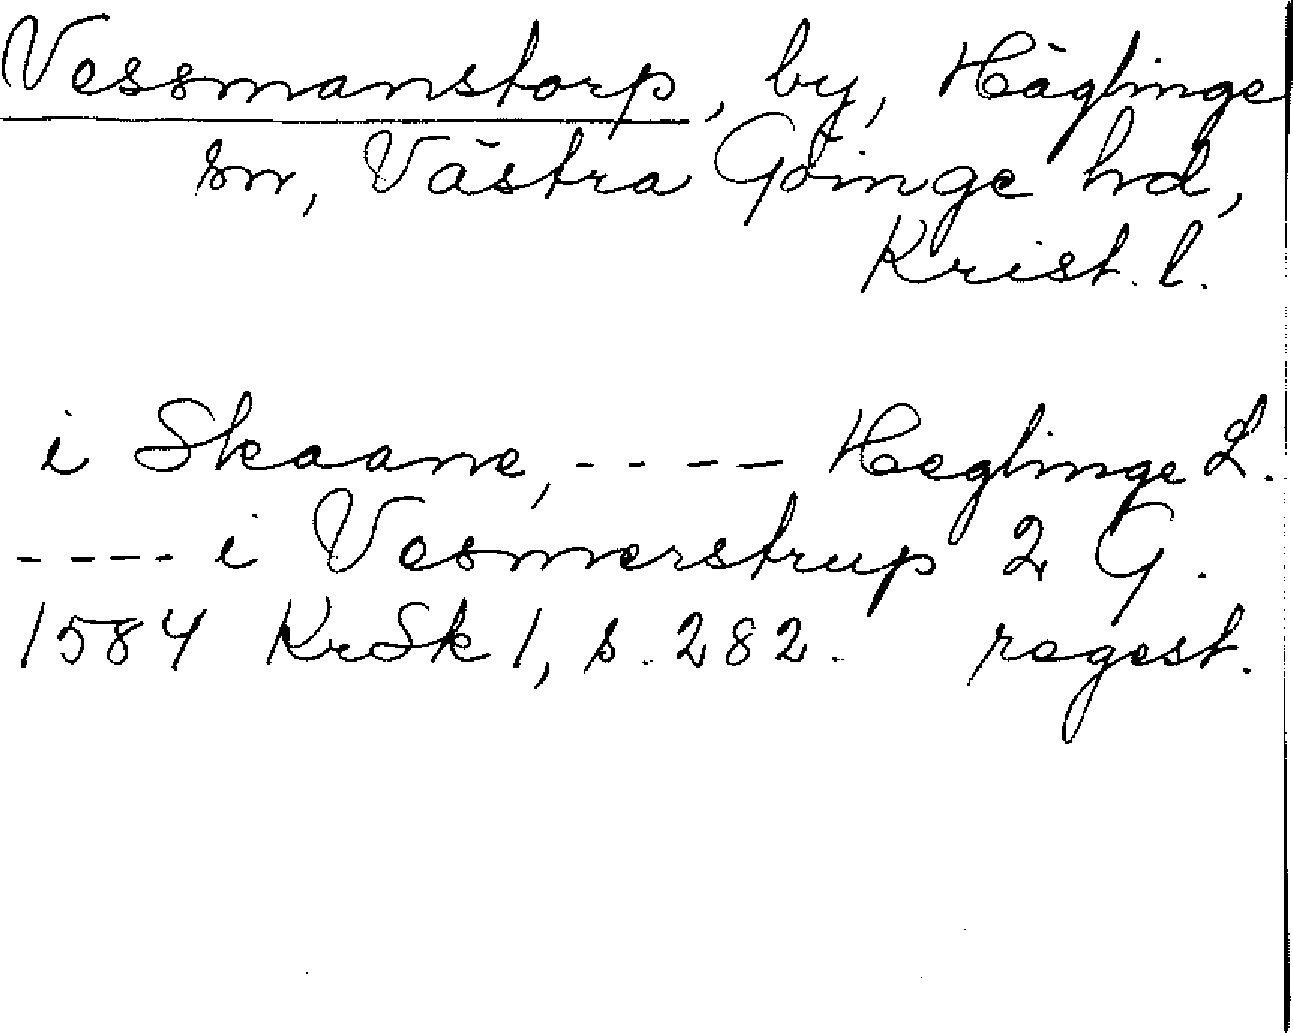 Vessmanstorp, by, Häglinge
sn, Västra Göinge hd,
Krist. l.
i Skaane, ---- Heglinge L.
---- i Vesmerstrup 2 G.
1584 KrSk 1, s. 282. regest.